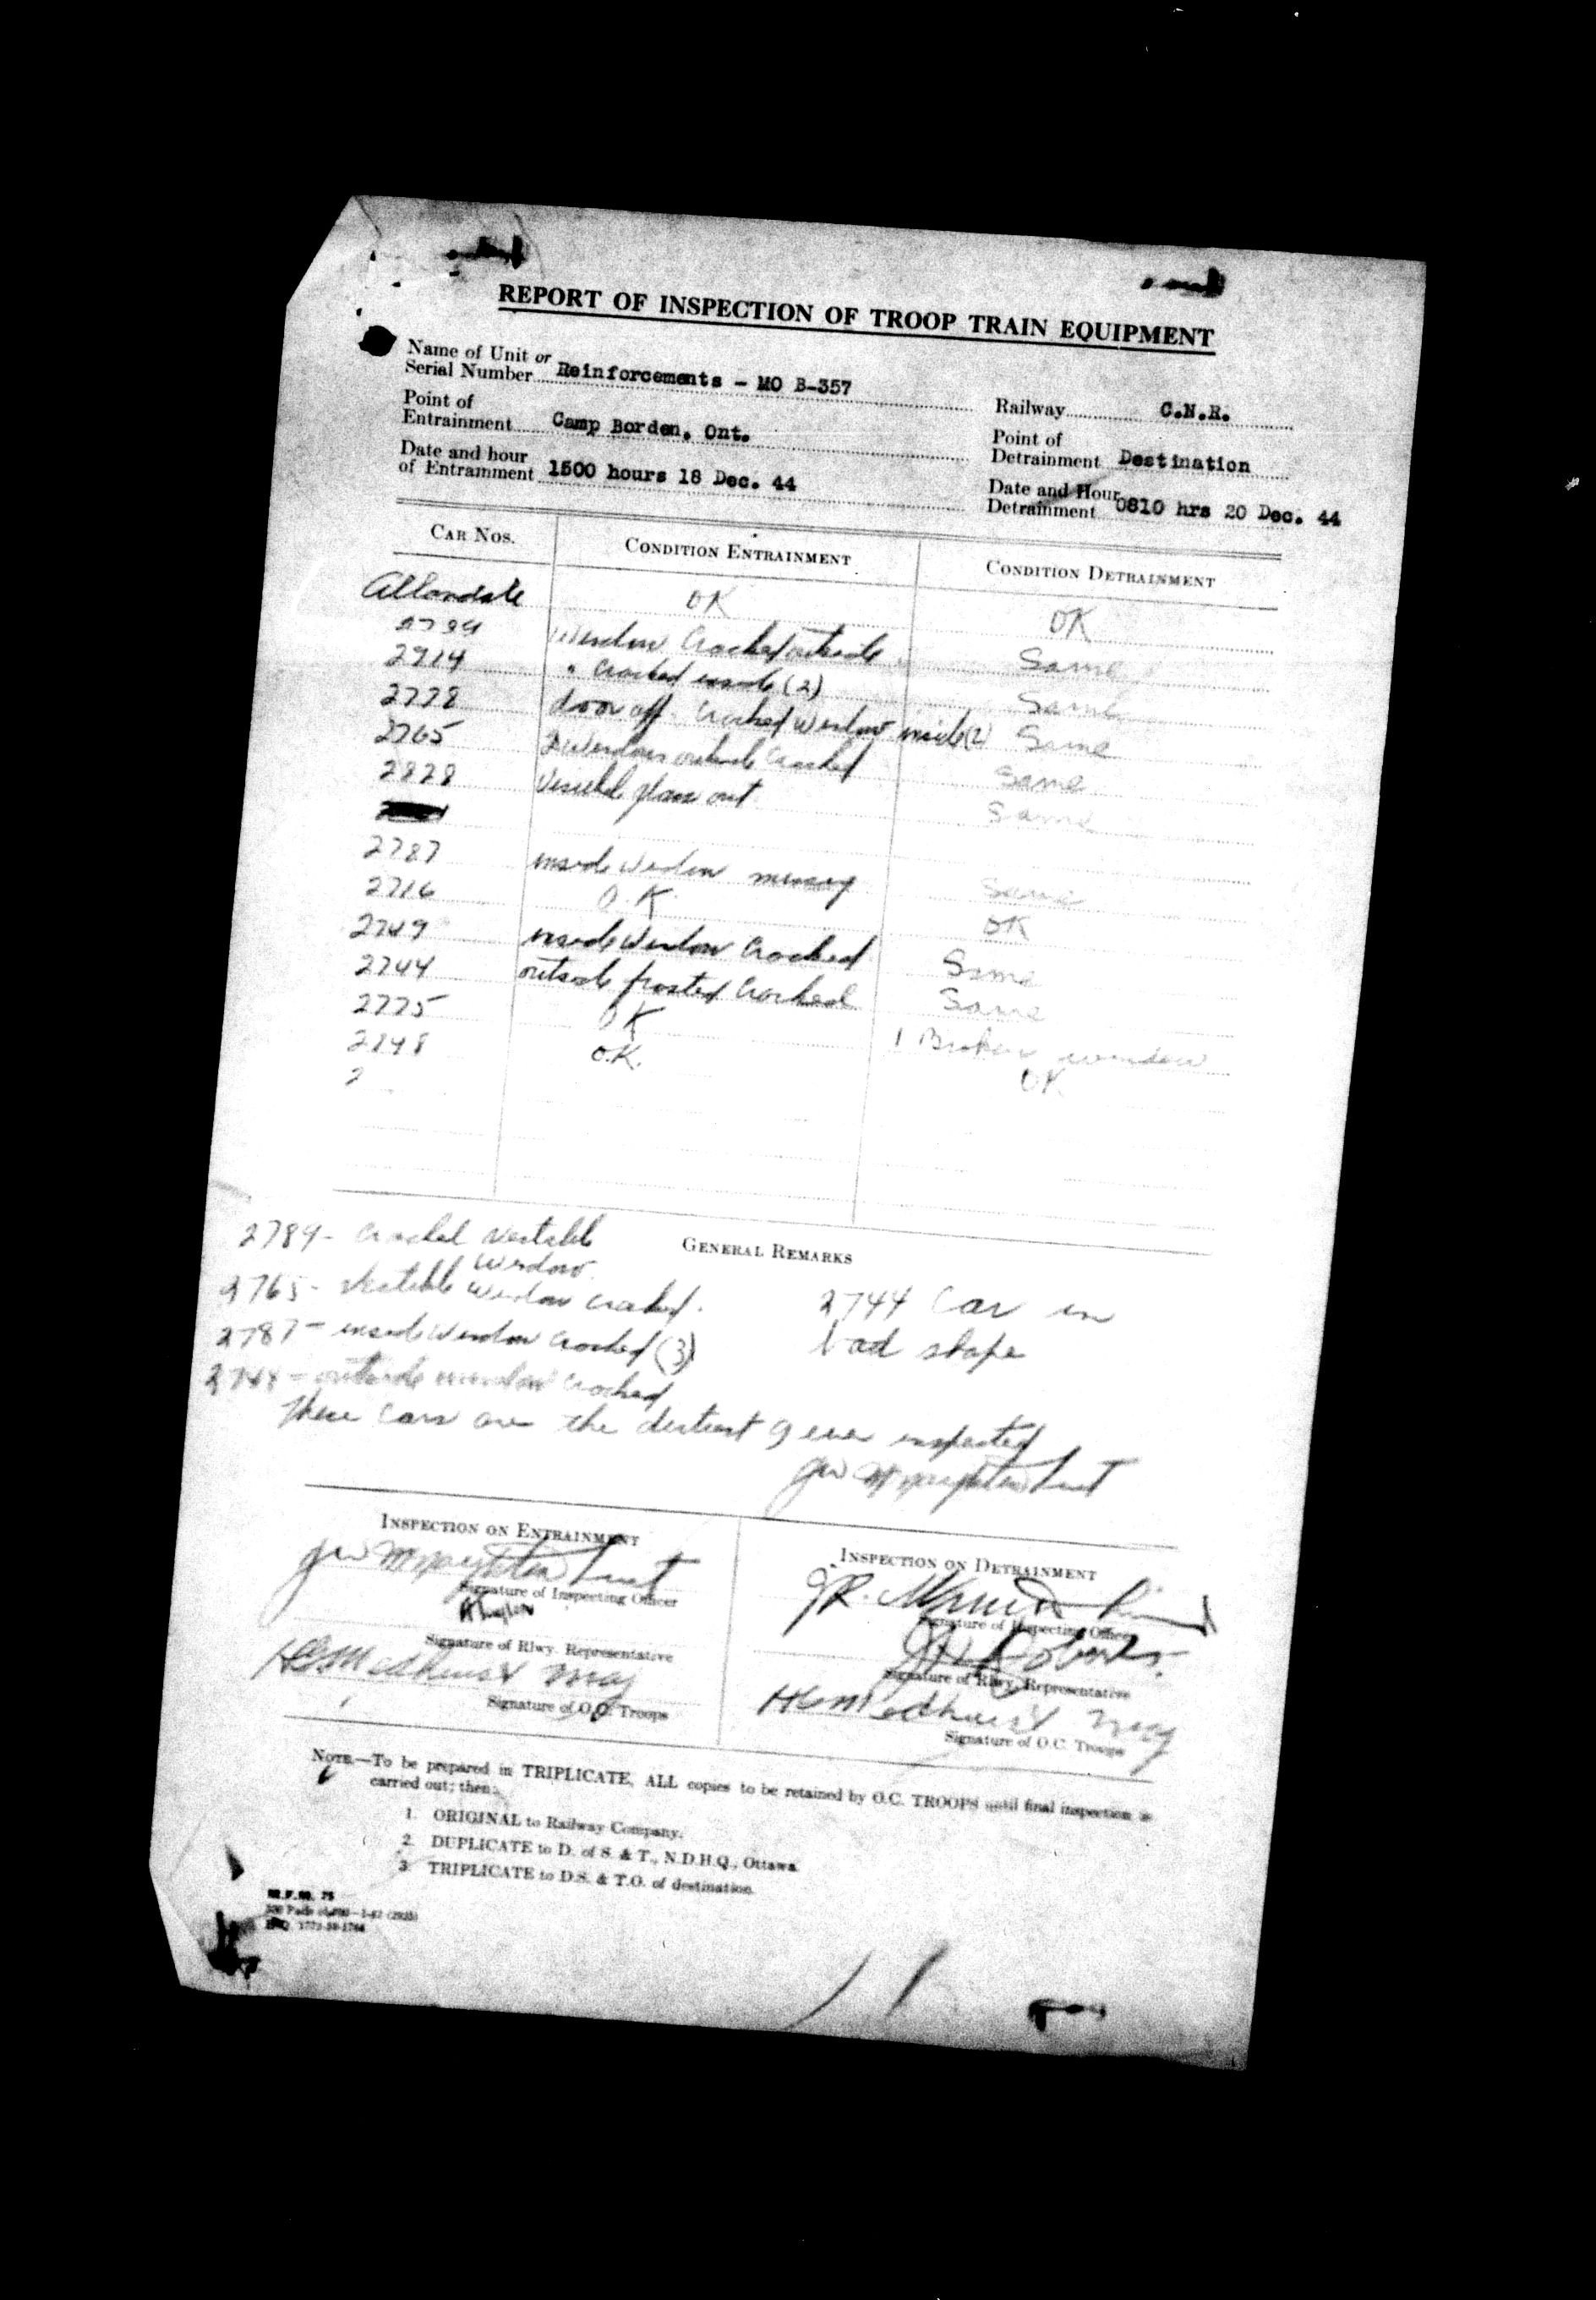 REPORT OF INSPECTION OF TROOP TRAIN EQUIPMENT
Name of Unit or
Serial Number Reinforcements - MO B-357
Railway C.N.R.
Point of
Entrainment Camp Borden, Ont.
Point of
Detrainment Destination
Date and hour
of Entrainment 1500 hours 18 Dec. 44
Date and Hour
Detrainment 0810 hrs 20 Dec. 44
CAR NOS. CONDITION ENTRAINMENT CONDITION DETRAINMENT
Allandale OK OK
Window Cracked outside Same
2914 " Cracked inside (2) Same
2778 door off Cracked Window inside (2) Same
2765 2 Windows outside Cracked Same
2828 glass out Same
2787 inside Window missing Same
2716 O.K. OK
2749 inside Window Cracked Same
2744 outside frosted Cracked Same
2775 OK 1 Broken window
2848 O.K. OK
2
GENERAL REMARKS
2789 - Cracked Vestable
Window
2765 - Vestible Window Cracked.
2787 - inside Window Cracked (3)
2744 Car in
bad shape
outside window Cracked
These Cars are the dirtiest I ever inspected
INSPECTION ON ENTRAINMENT
Signature of Inspecting Officer
Signature of Rlwy. Representative
HG Medhurst Maj
Signature of O.C. Troops
INSPECTION ON DETRAINMENT
Signature of Inspecting Officer
Roberts.
Signature of Rlwy. Representative
HG Medhurst Maj
Signature of O.C. Troops
NOTE.—To be prepared in TRIPLICATE, ALL copies to be retained by O.C. TROOPS until final inspection is
carried out; then:
1. ORIGINAL to Railway Company.
2. DUPLICATE to D. of S. & T., N.D.H.Q., Ottawa.
3. TRIPLICATE to D.S. & T.O. of destination.